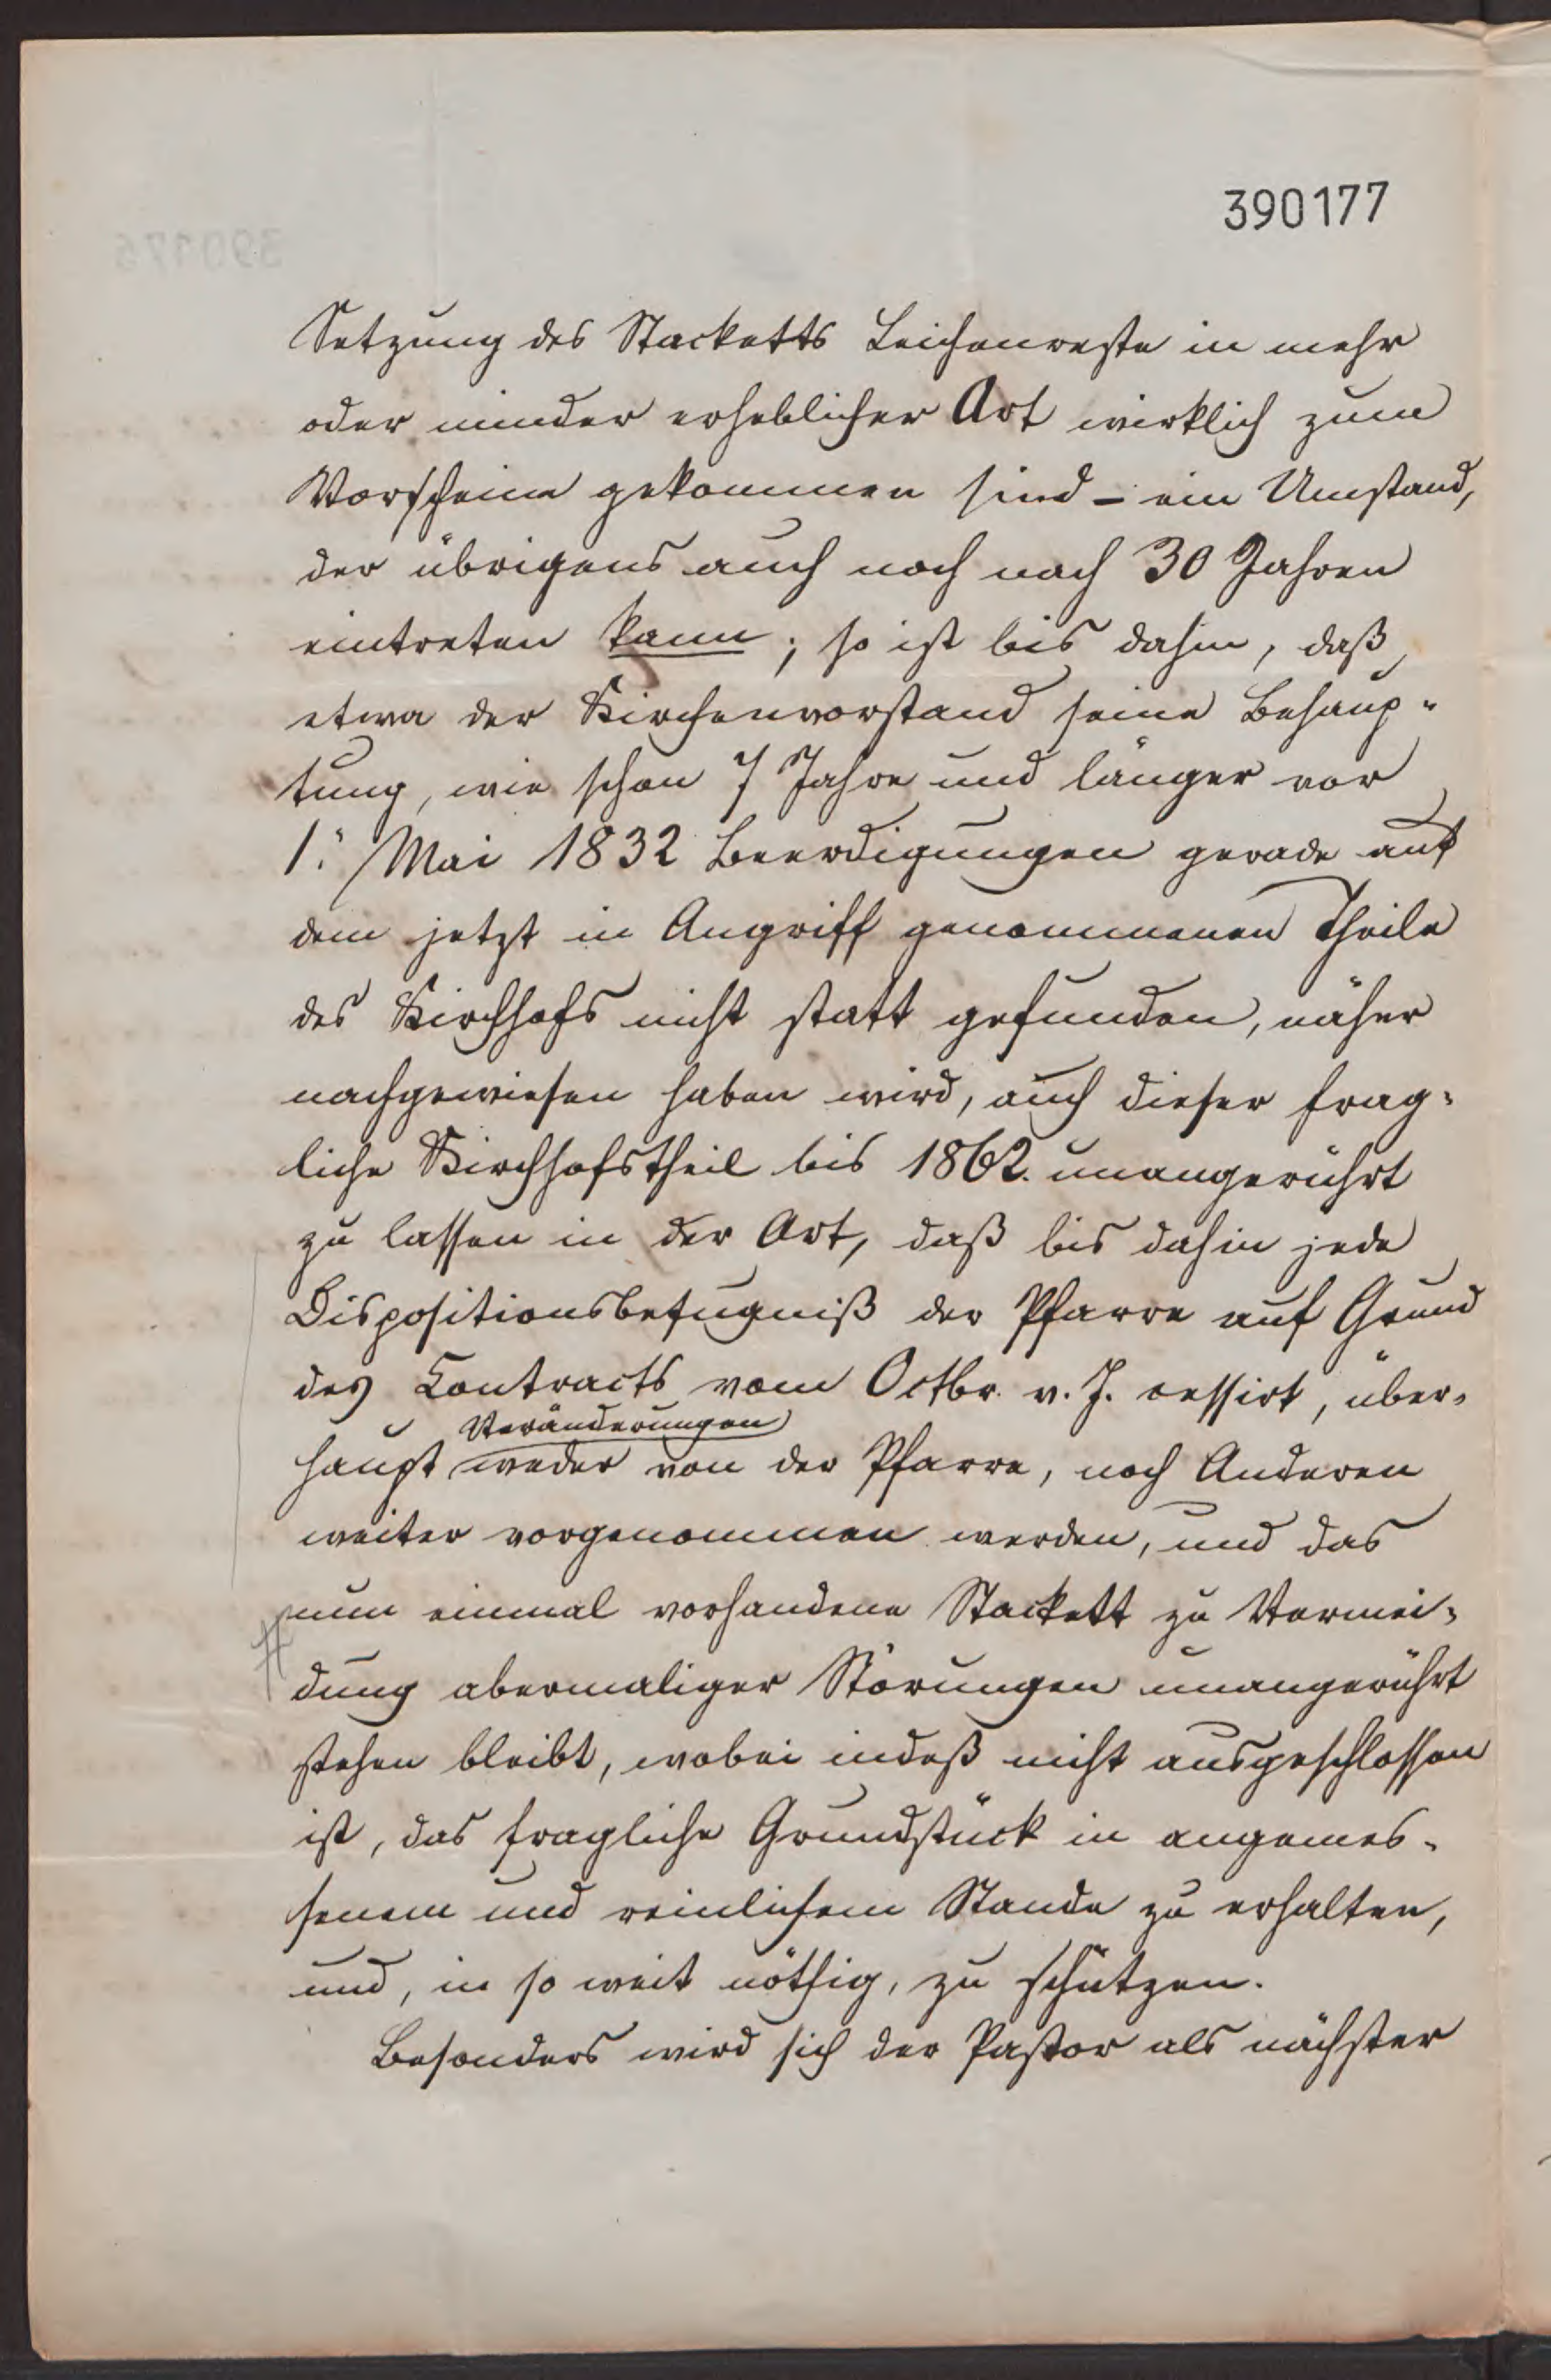 390177
Setzung des Stacketts Leichenreste in mehr
oder minder erheblicher Art wirklich zum
Vorschein gekommen sind – ein Umstand,
der übrigens auch noch nach 30 Jahren
eintreten kann; so ist bis dahin, daß
etwa der Kirchenvorstand seine Behaup-
tung, wie schon 7 Jahre und länger vor
1. Mai 1832 Beerdigungen gerade auf
dem jetzt in Angriff genommenen Theile
des Kirchhofs nicht statt gefunden, näher
nachgewiesen haben wird, auch dieser frag-
liche Kirchhofstheil bis 1862. unangerührt
zu lassen in der Art, daß bis dahin jede
Dispositionsbefugniß der Pfarre auf Grund
des Contracts vom Octbr. v. J. cessirt, über-
Veränderungen
haupt weder von der Pfarre, noch Anderen
weiter vorgenommen werden, und das
nun einmal vorhandene Stackett zu Vermei-
dung abermaliger Störungen unangerührt
stehen bleibt, wobei indeß nicht ausgeschlossen
ist, das fragliche Grundstück in angemes-
senem und reinlichem Stande zu erhalten,
und, in so weit nöthig, zu schützen.
Besonders wird sich der Pastor als nächster